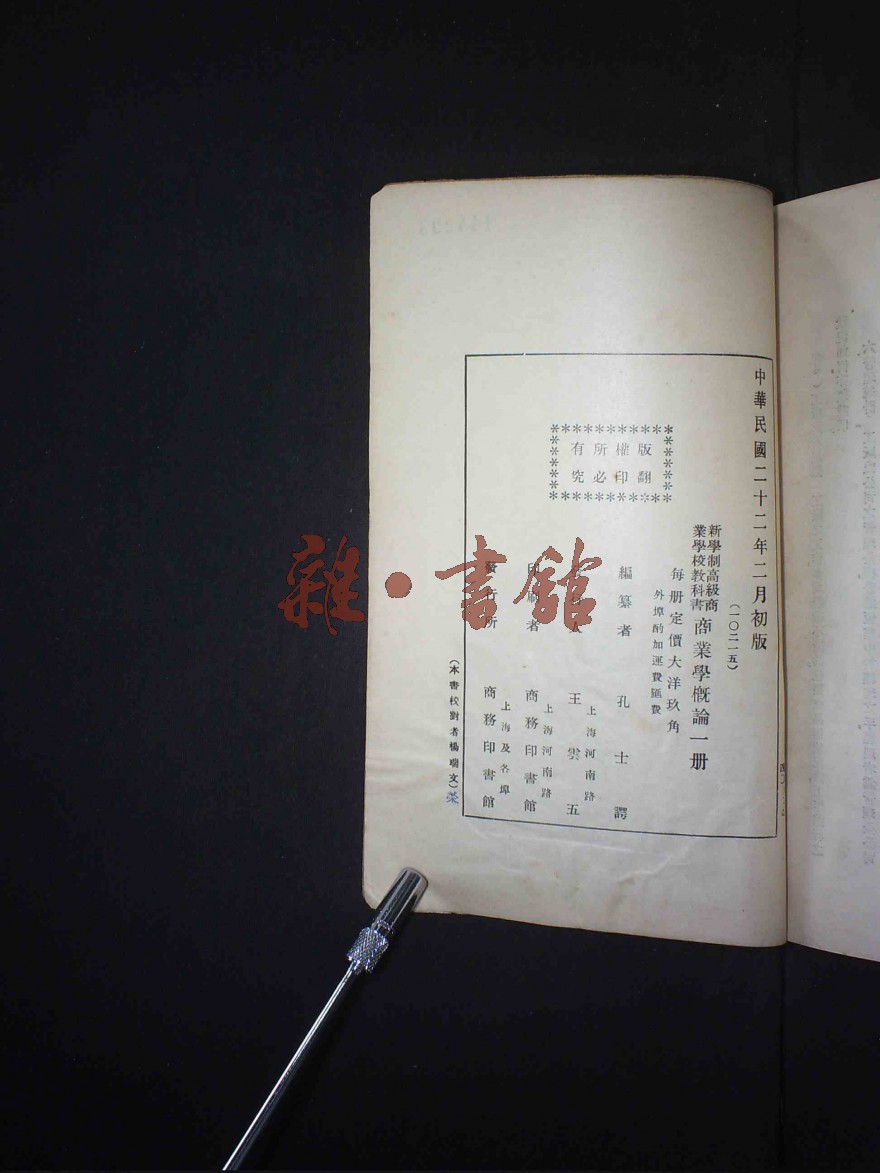 中華民國二十二年二月初版
(一〇二一五)
新學制高級商業學校教科書 商業學概論一册
每册定價大洋玖角
外埠酌加運費匯費
版權所有
翻印必究
編纂者 孔士諤
上海河南路
王雲五
上海河南路
印刷者 商務印書館
上海及各埠
發行所 商務印書館
(本書校對者楊瑞文)
雜·書館